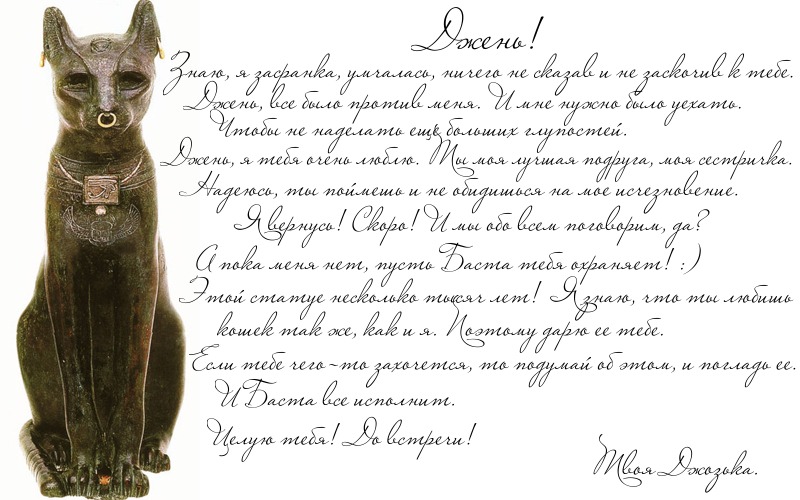 Джень!
Знаю, я засранка, умчалась, ничего не сказав и не заскочив к тебе.
Джень, все было против меня. И мне нужно было уехать.
Чтобы не наделать ещё больших глупостей.
Джень, я тебя очень люблю. Ты моя лучшая подруга, моя сестричка.
Надеюсь, ты поймешь и не обидишься на мое исчезновение.
Я вернусь! Скоро! И мы обо всем поговорим, да?
А пока меня нет, пусть Баста тебя охраняет! :)
Этой статуе несколько тысяч лет! Я знаю, что ты любишь
кошек так же, как и я. Поэтому дарю ее тебе.
Если тебе чего-то захочется, то подумай об этом, и погладь ее.
И Баста все исполнит.
Целую тебя! До встречи!
Твоя Джозька.